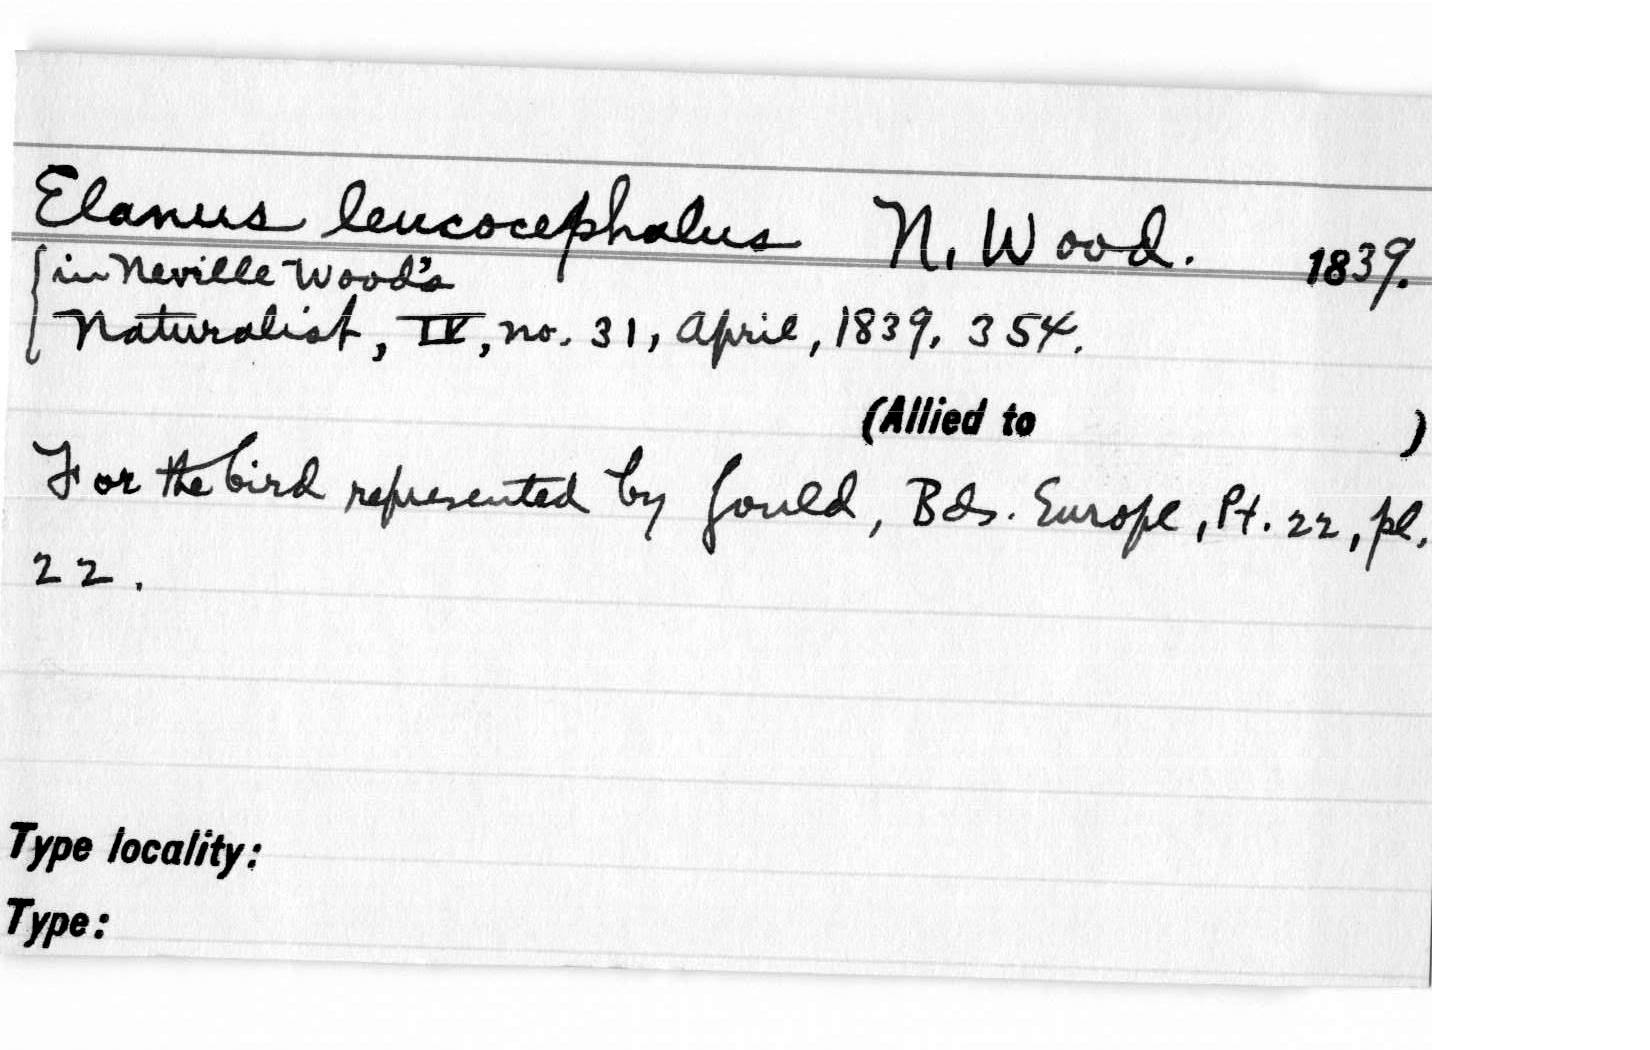 Elanus leucocephalus N. Wood. 1839.
in Neville Wood's
Naturalist, IV, no. 31, April, 1839, 354.
(Allied to )
For the bird represented by Gould, Bds. Europe, Pt. 22, pl.
22.
Type locality:
Type: